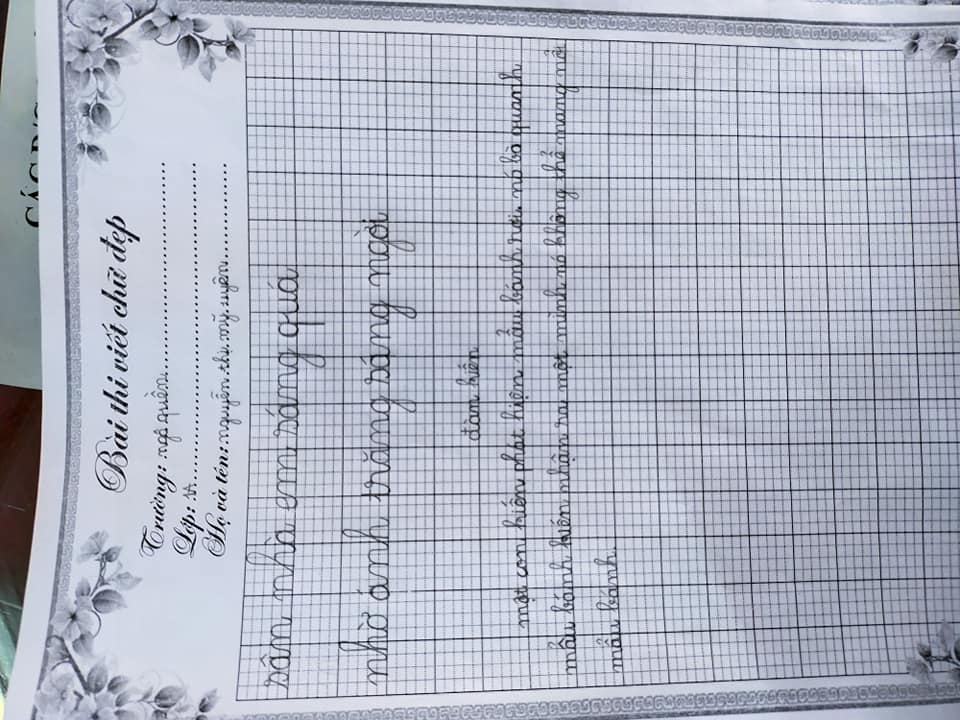 Bài thi viết chữ đẹp
Trường: ngô quyền
Lớp: 1A
Họ và tên: nguyễn thị mỹ uyên
sân nhà em sáng quá
nhờ ánh trăng sáng ngời
đàn kiến
một con kiến phát hiện mẩu bánh rơi. nó bò quanh
mẩu bánh kiến nhận ra một mình nó không thể mang nổi
mẩu bánh.